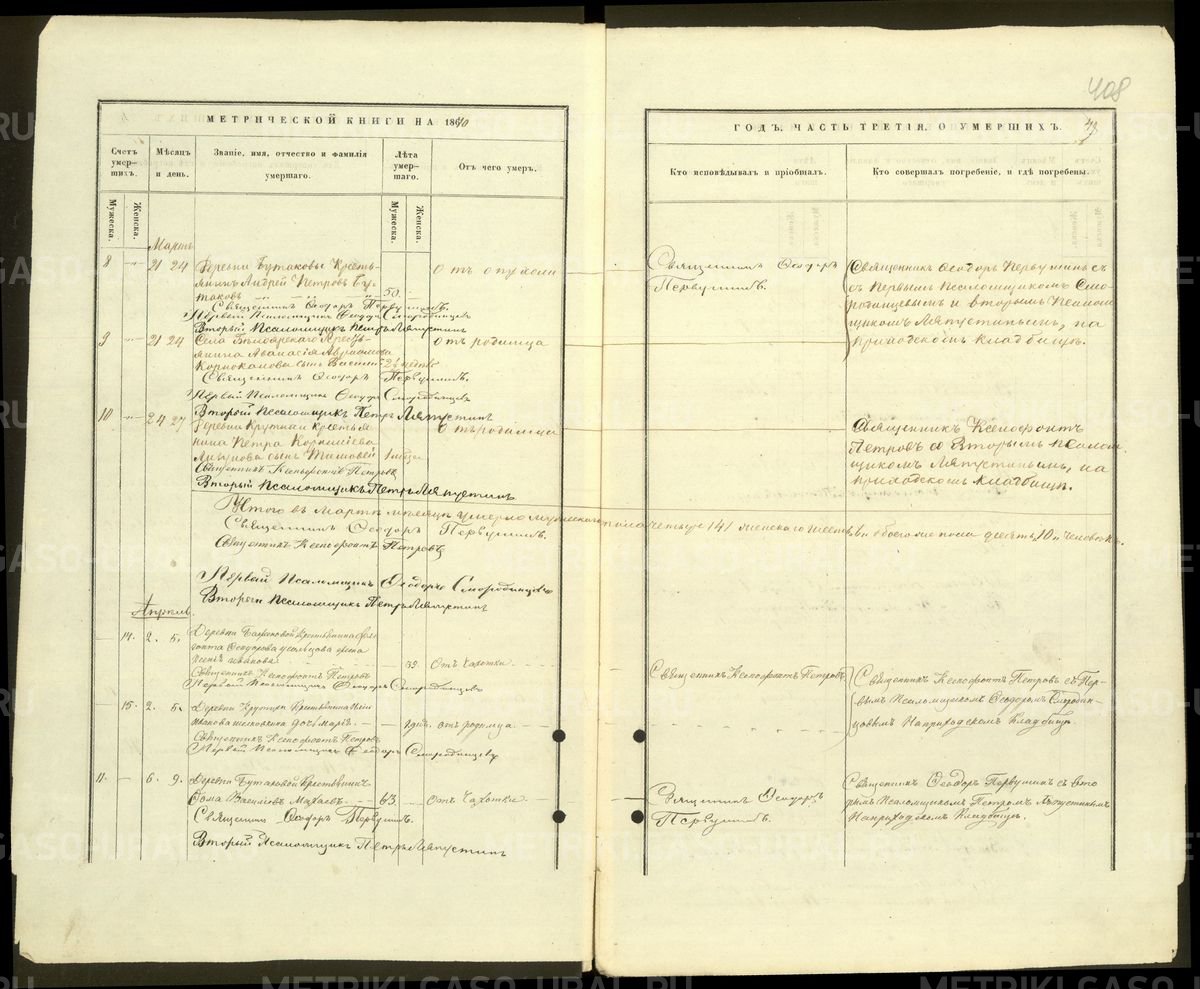 408
МЕТРИЧЕСКОЙ КНИГИ НА 18
ГОДЪ, ЧАСТЬ ТРЕТІЯ, О УМЕРШИХЪ.
49
Счетъ умершихъ.
Мѣсяцъ и день.
Званіе, имя, отчество и фамилія умершаго.
Лѣта умершаго.
Отъ чего умеръ.
Кто исповѣдывалъ и пріобщалъ.
Кто совершалъ погребеніе, и гдѣ погребены.
Мужеска.
Женска.
Мужеска.
Женска.
Мартъ
8 " 21 24
Деревни Бутаковы Кресть-
янинъ Андрей Петровъ Бу-
таковъ
50.
отъ опухоли
Священникъ Ѳеодоръ Первушинъ.
Первый Псаломщикъ Ѳеодоръ Смородинцевъ
Второй Псаломщикъ Петръ Ляпустинъ
Священникъ Ѳеодоръ
Первушинъ.
Священникъ Ѳеодоръ Первушинъ съ
Первымъ Псаломщикомъ Смо-
родинцевымъ и вторымъ Псалом
щикомъ Ляпустинымъ, на
приходскомъ кладбищѣ.
9 " 21 24
Села Бѣлоярскаго Кресть-
янина Аѳанасія
сынъ
отъ родимца
Священникъ Ѳеодоръ Первушинъ.
Первый Псаломщикъ Ѳеодоръ Смородинцевъ
Второй Псаломщикъ Петръ Ляпустинъ
10 " 24 27
Деревни Крутихи крестья
нина Петра Корниліева
сынъ Тимоѳей
отъ родимца
Священникъ Ксенофонтъ Петровъ
Второй Псаломщикъ Петръ Ляпустинъ
Священникъ Ксенофонтъ
Петровъ со Вторымъ псалом
щикомъ Ляпустинымъ, на
приходскомъ кладбищѣ.
Итого въ Мартѣ мѣсяцѣ умерло мужескаго пола четыре /4/ женскаго шесть обоего пола десять /10/ человѣкъ.
Священникъ Ѳеодоръ Первушинъ.
Священникъ Ксенофонтъ Петровъ
Первый Псаломщикъ Ѳеодоръ Смородинцевъ
Второй Псаломщикъ Петръ Ляпустинъ
Апрель.
14. 2. 5.
Деревни Баженовой Крестьянина
Ѳеодорова жена
отъ чахотки
Священникъ Ксенофонтъ Петровъ
Первый Псаломщикъ Ѳеодоръ Смородинцевъ
Священникъ Ксенофонтъ Петровъ
Священникъ Ксенофонтъ Петровъ съ Пер-
вымъ Псаломщикомъ Ѳеодоромъ Смородин-
цовымъ На приходскомъ Кладбищѣ.
15. 2. 5.
Деревни Крутихи Крестьянина
дочь
отъ родимца
Священникъ Ксенофонтъ Петровъ
Первый Псаломщикъ Ѳеодоръ Смородинцевъ
11. 6. 9.
Деревни Бутаковой Крестьянинъ
Ѳома Васильевъ
63
отъ чахотки
Священникъ Ѳеодоръ Первушинъ.
Второй Псаломщикъ Петръ Ляпустинъ
Священникъ Ѳеодоръ
Первушинъ.
Священникъ Ѳеодоръ Первушинъ съ Вто
рымъ Псаломщикомъ Петромъ Ляпустинымъ
На приходскомъ Кладбищѣ.
METRIKI.GASO-URAL.RU